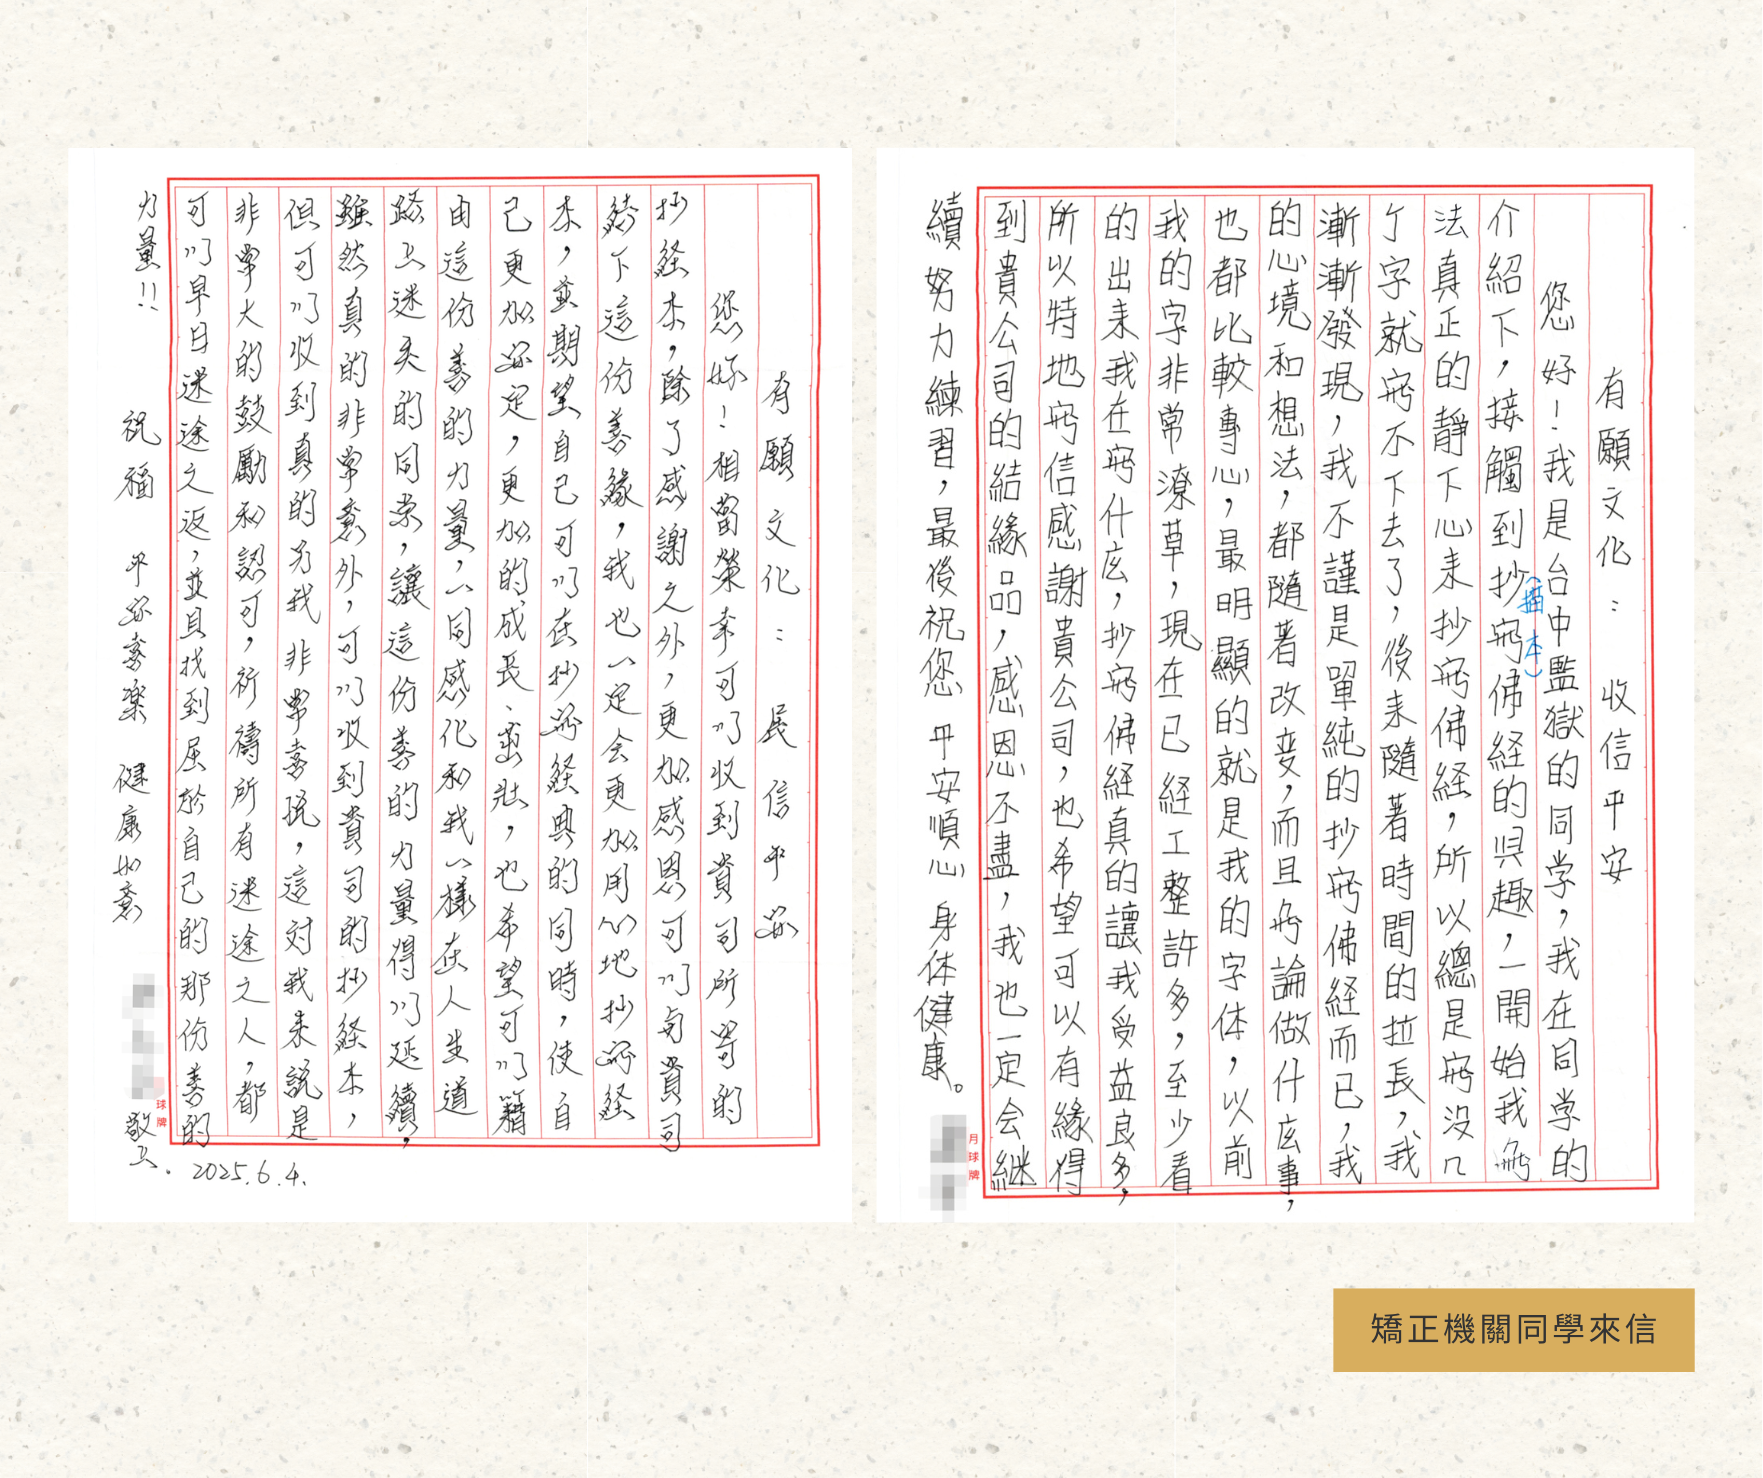 有願文化： 收信平安
您好！我是台中監獄的同学，我在同学的
介紹下，接觸到抄寫佛経的興趣，一開始我寫
（描本）
法真正的靜下心来抄寫佛経，所以總是寫没几
个字就寫不下去了，後来隨著時間的拉長，我
漸漸發現，我不謹是單純的抄寫佛経而已，我
的心境和想法，都隨著改变，而且無論做什広事，
也都比較專心，最明顯的就是我的字体，以前
我的字非常潦草，現在已経工整許多，至少看
的出来我在寫什広，抄寫佛経真的讓我受益良多，
所以特地寫信感謝貴公司，也希望可以有緣得
到貴公司的結緣品，感恩不盡，我也一定会継
續努力練習，最後祝您 平安順心 身体健康。
月球牌
有願文化： 展信平安
您好！相當榮幸可以收到貴司所寄的
抄経本，除了感謝之外，更加感恩可以与貴司
結下這份善緣，我也一定会更加用心地抄寫経
本，並期望自己可以在抄寫経典的同時，使自
己更加安定，更加的成長、茁壯，也希望可以籍
由這份善的力量，一同感化和我一樣在人生道
路上迷失的同学，讓這份善的力量得以延續，
雖然真的非常意外，可以收到貴司的抄経本，
但可以收到真的另我非常喜悦，這对我来說是
非常大的鼓勵和認可，祈禱所有迷途之人，都
可以早日迷途之返，並且找到屈於自己的那份善的
力量!!
祝福 平安喜楽 健康如意
敬上.
球牌
2025.6.4.
矯正機關同學來信